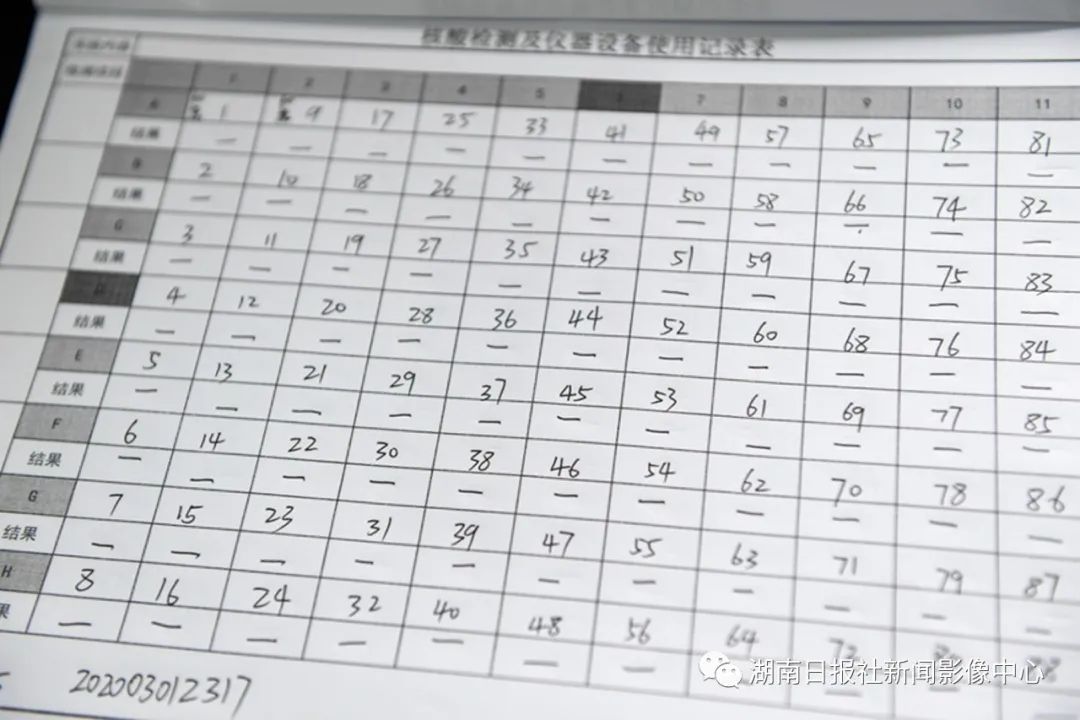 核酸检测及仪器设备使用记录表
1 2 3 4 5 7 8 9 10 11
A 1 9 17 25 33 41 49 57 65 73 81
结果 — — — — — — — — — — —
B 2 10 18 26 34 42 50 58 66 74 82
结果 — — — — — — — — — — —
3 11 19 27 35 43 51 59 67 75 83
结果 — — — — — — — — — — —
D 4 12 20 28 36 44 52 60 68 76 84
结果 — — — — — — — — — — —
E 5 13 21 29 37 45 53 61 69 77 85
结果 — — — — — — — — — — —
F 6 14 22 30 38 46 54 62 70 78 86
结果 — — — — — — — — — — —
G 7 15 23 31 39 47 55 63 71 79 87
结果 — — — — — — — — — — —
H 8 16 24 32 40 48 56 64 72 80 88
果 — — — — — — — — — —
202003012317
湖南日报社新闻影像中心